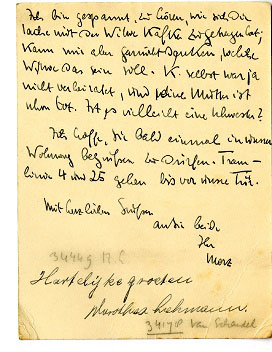 Ich bin gespannt, zu hören, wie sich die
Sache mit der Witwe Kafka zugetragen hat;
kann mir aber garnicht denken, welche
Witwe das sein soll. K. selbst war ja
nicht verheiratet, und seine Mutter ist
schon tot. Ist es vielleicht eine Schwester?
Ich hoffe, Sie bald einmal in unserer
Wohnung begrüssen zu dürfen. Tram-
linie 4 und 25 gehen bis vor unsere Tür.
Mit herzlichen Grüssen
an Sie beide
Ihr
34449
Hartelijke groeten
Dorothea Lehmann.
34171P van Schendel